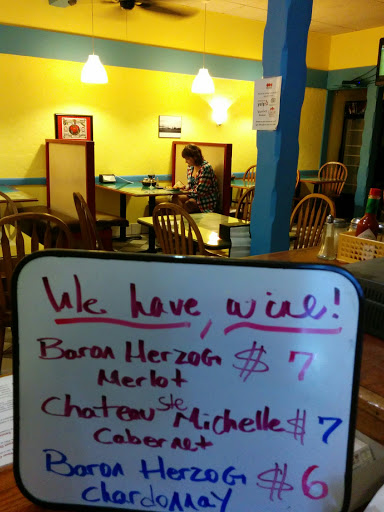 We have, wine!
Baron Herzog $7
Merlot
Chateau Ste Michelle $7
Cabernet
Baron Herzog $6
Chardonnay